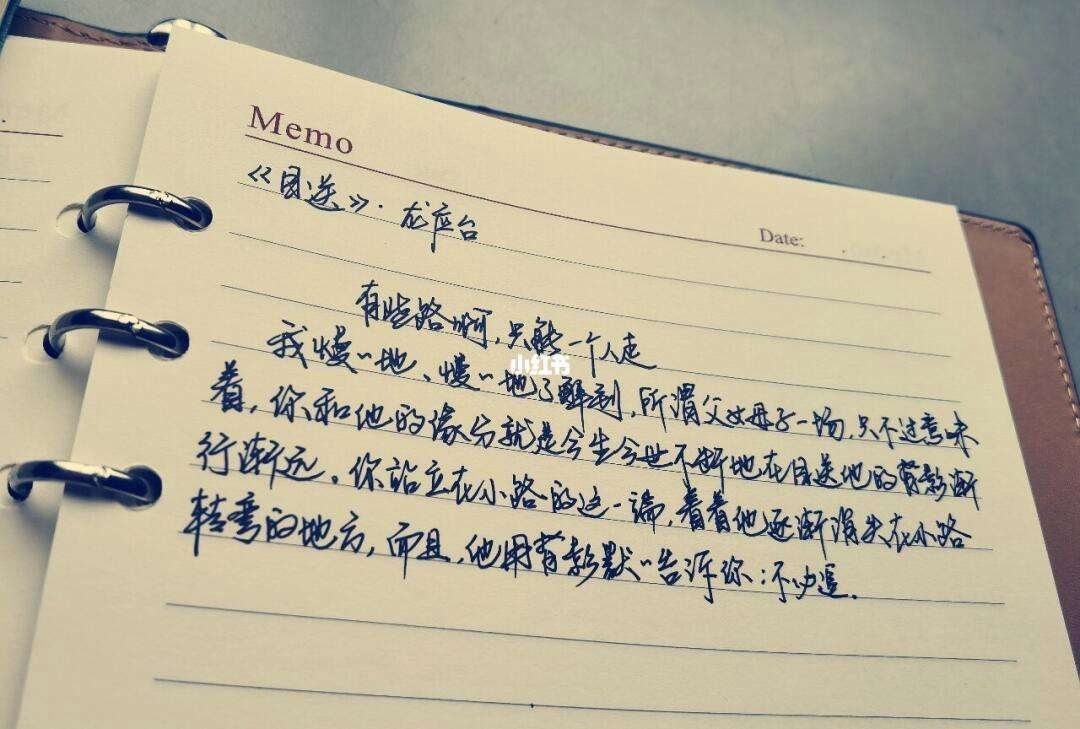 Memo
《目送》·龙应台
Date:
有些路啊,只能一个人走
小红书
我慢〃地、慢〃地了解到,所谓父女母子一场,只不过意味
着,你和他的缘分就是今生今世不断地在目送他的背影渐
行渐远。你站立在小路的这一端,看着他逐渐消失在小路
转弯的地方,而且,他用背影默〃告诉你:不必追.